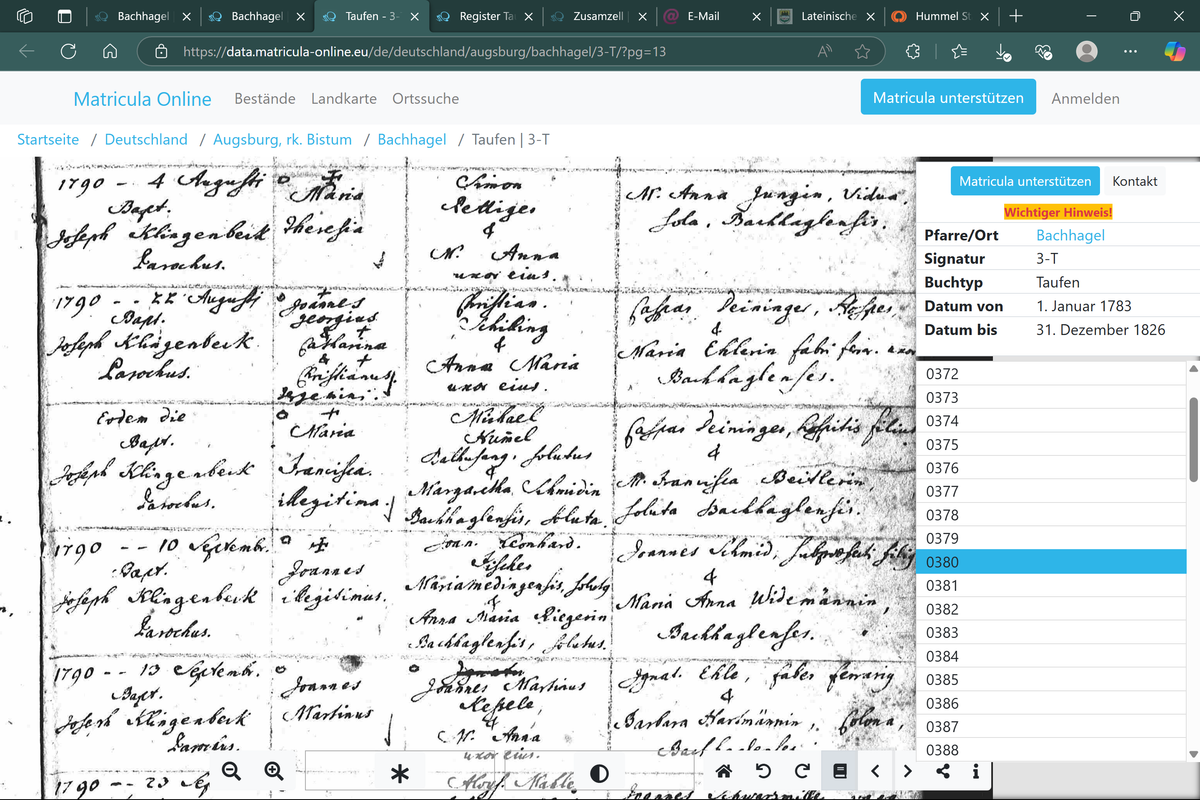 Bachhagel
Bachhagel
Taufen - 3-
Register Ta
Zusamzell
E-Mail
Lateinische
Hummel St
https://data.matricula-online.eu/de/deutschland/augsburg/bachhagel/3-T/?pg=13
Matricula Online Bestände Landkarte Ortssuche Matricula unterstützen Anmelden
Startseite / Deutschland / Augsburg, rk. Bistum / Bachhagel / Taufen | 3-T
Matricula unterstützen Kontakt
Wichtiger Hinweis!
Pfarre/Ort Bachhagel
Signatur 3-T
Buchtyp Taufen
Datum von 1. Januar 1783
Datum bis 31. Dezember 1826
0372
0373
0374
0375
0376
0377
0378
0379
0380
0381
0382
0383
0384
0385
0386
0387
0388
1790 - 4 Augusti
Bapt.
Joseph Klingenbeck
Parochus.
Maria
Theresia
Simon
&
N. Anna
uxor eius.
N. Anna Jungin, Vidua,
sola, Bachhaglensis.
1790 - - 22 Augusti
Bapt.
Joseph Klingenbeck
Parochus.
Joannes
georgius
Catharina
&
Christianus
Christian.
Schiling
&
Anna Maria
uxor eius.
Caspar Deininger,
&
Maria Ehlerin fabri ferr. uxor
Bachhaglenses.
Eodem die
Bapt.
Joseph Klingenbeck
Parochus.
Maria
Francisca.
illegitima.
Michael
Humel
solutus
&
Margaretha Schmidin
Bachhaglensis, soluta.
Caspar Deininger, hospitis filius
&
N. Francisca Beitlerin
soluta Bachhaglensis.
1790 - - 10 Septemb.
Bapt.
Joseph Klingenbeck
Parochus.
Joannes
illegitimus.
Joan. Leonhard.
Fischer
Mariamedingensis, solutus
&
Anna Maria Riegerin
Bachhaglensis, solutus.
Joannes Schmid,
&
Maria Anna Widemännin,
Bachhaglenses.
1790 - - 13 Septembr.
Bapt.
Joseph Klingenbeck
Parochus.
Joannes
Martinus
Joannes Martinus
Kesele,
&
N. Anna
uxor eius.
Ignat. Ehle, faber ferrarius
&
Barbara Hartmännin, Colona,
1790 - - 23